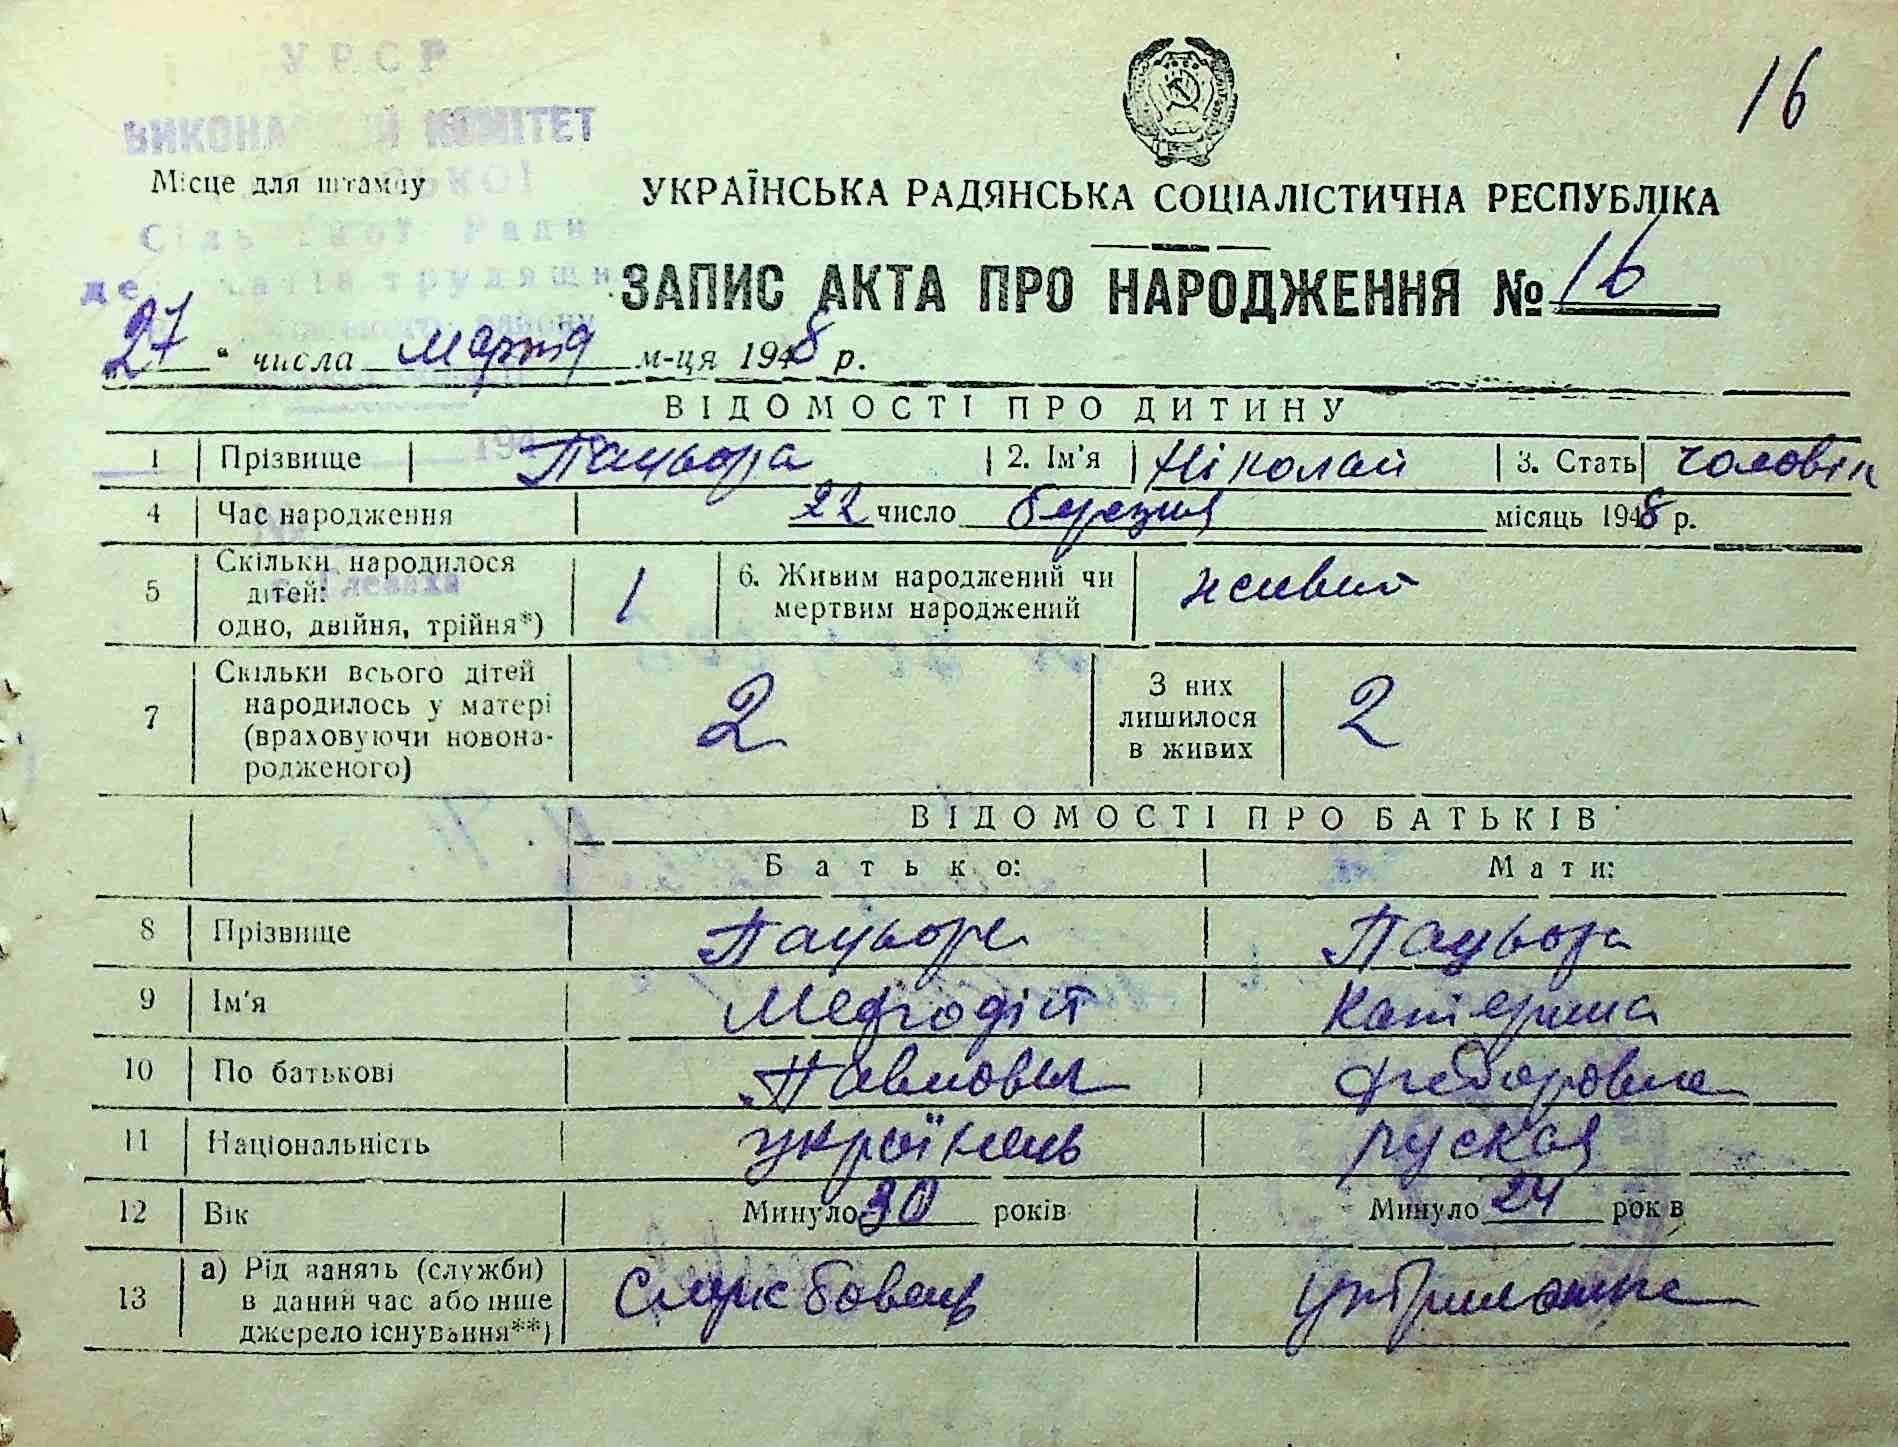 УРСР
16
ВИКОНА Й КОМІТЕТ
Місце для штампу
УКРАЇНСЬКА РАДЯНСЬКА СОЦІАЛІСТИЧНА РЕСПУБЛІКА
Ради
трудящ
ЗАПИС АКТА ПРО НАРОДЖЕННЯ № 16
„27" числа марта м-ця 1948 р.
ВІДОМОСТІ ПРО ДИТИНУ
1 Прізвище Пацьора 2. Ім'я Ніколай 3. Стать чоловік
4 Час народження 22 число березня місяць 1948 р.
5 Скільки народилося дітей: одно, двійня, трійня*) 1 6. Живим народжений чи мертвим народжений живим
7 Скільки всього дітей народилось у матері (враховуючи новонародженого) 2 З них лишилося в живих 2
ВІДОМОСТІ ПРО БАТЬКІВ
Батько: Мати:
8 Прізвище Пацьора Пацьора
9 Ім'я Мефодій Катерина
10 По батькові Павлович Федоровна
11 Національність українець руская
12 Вік Минуло 30 років Минуло 24 рок в
13 а) Рід занять (служби) в даний час або інше джерело існування**) Службовець Утриманка